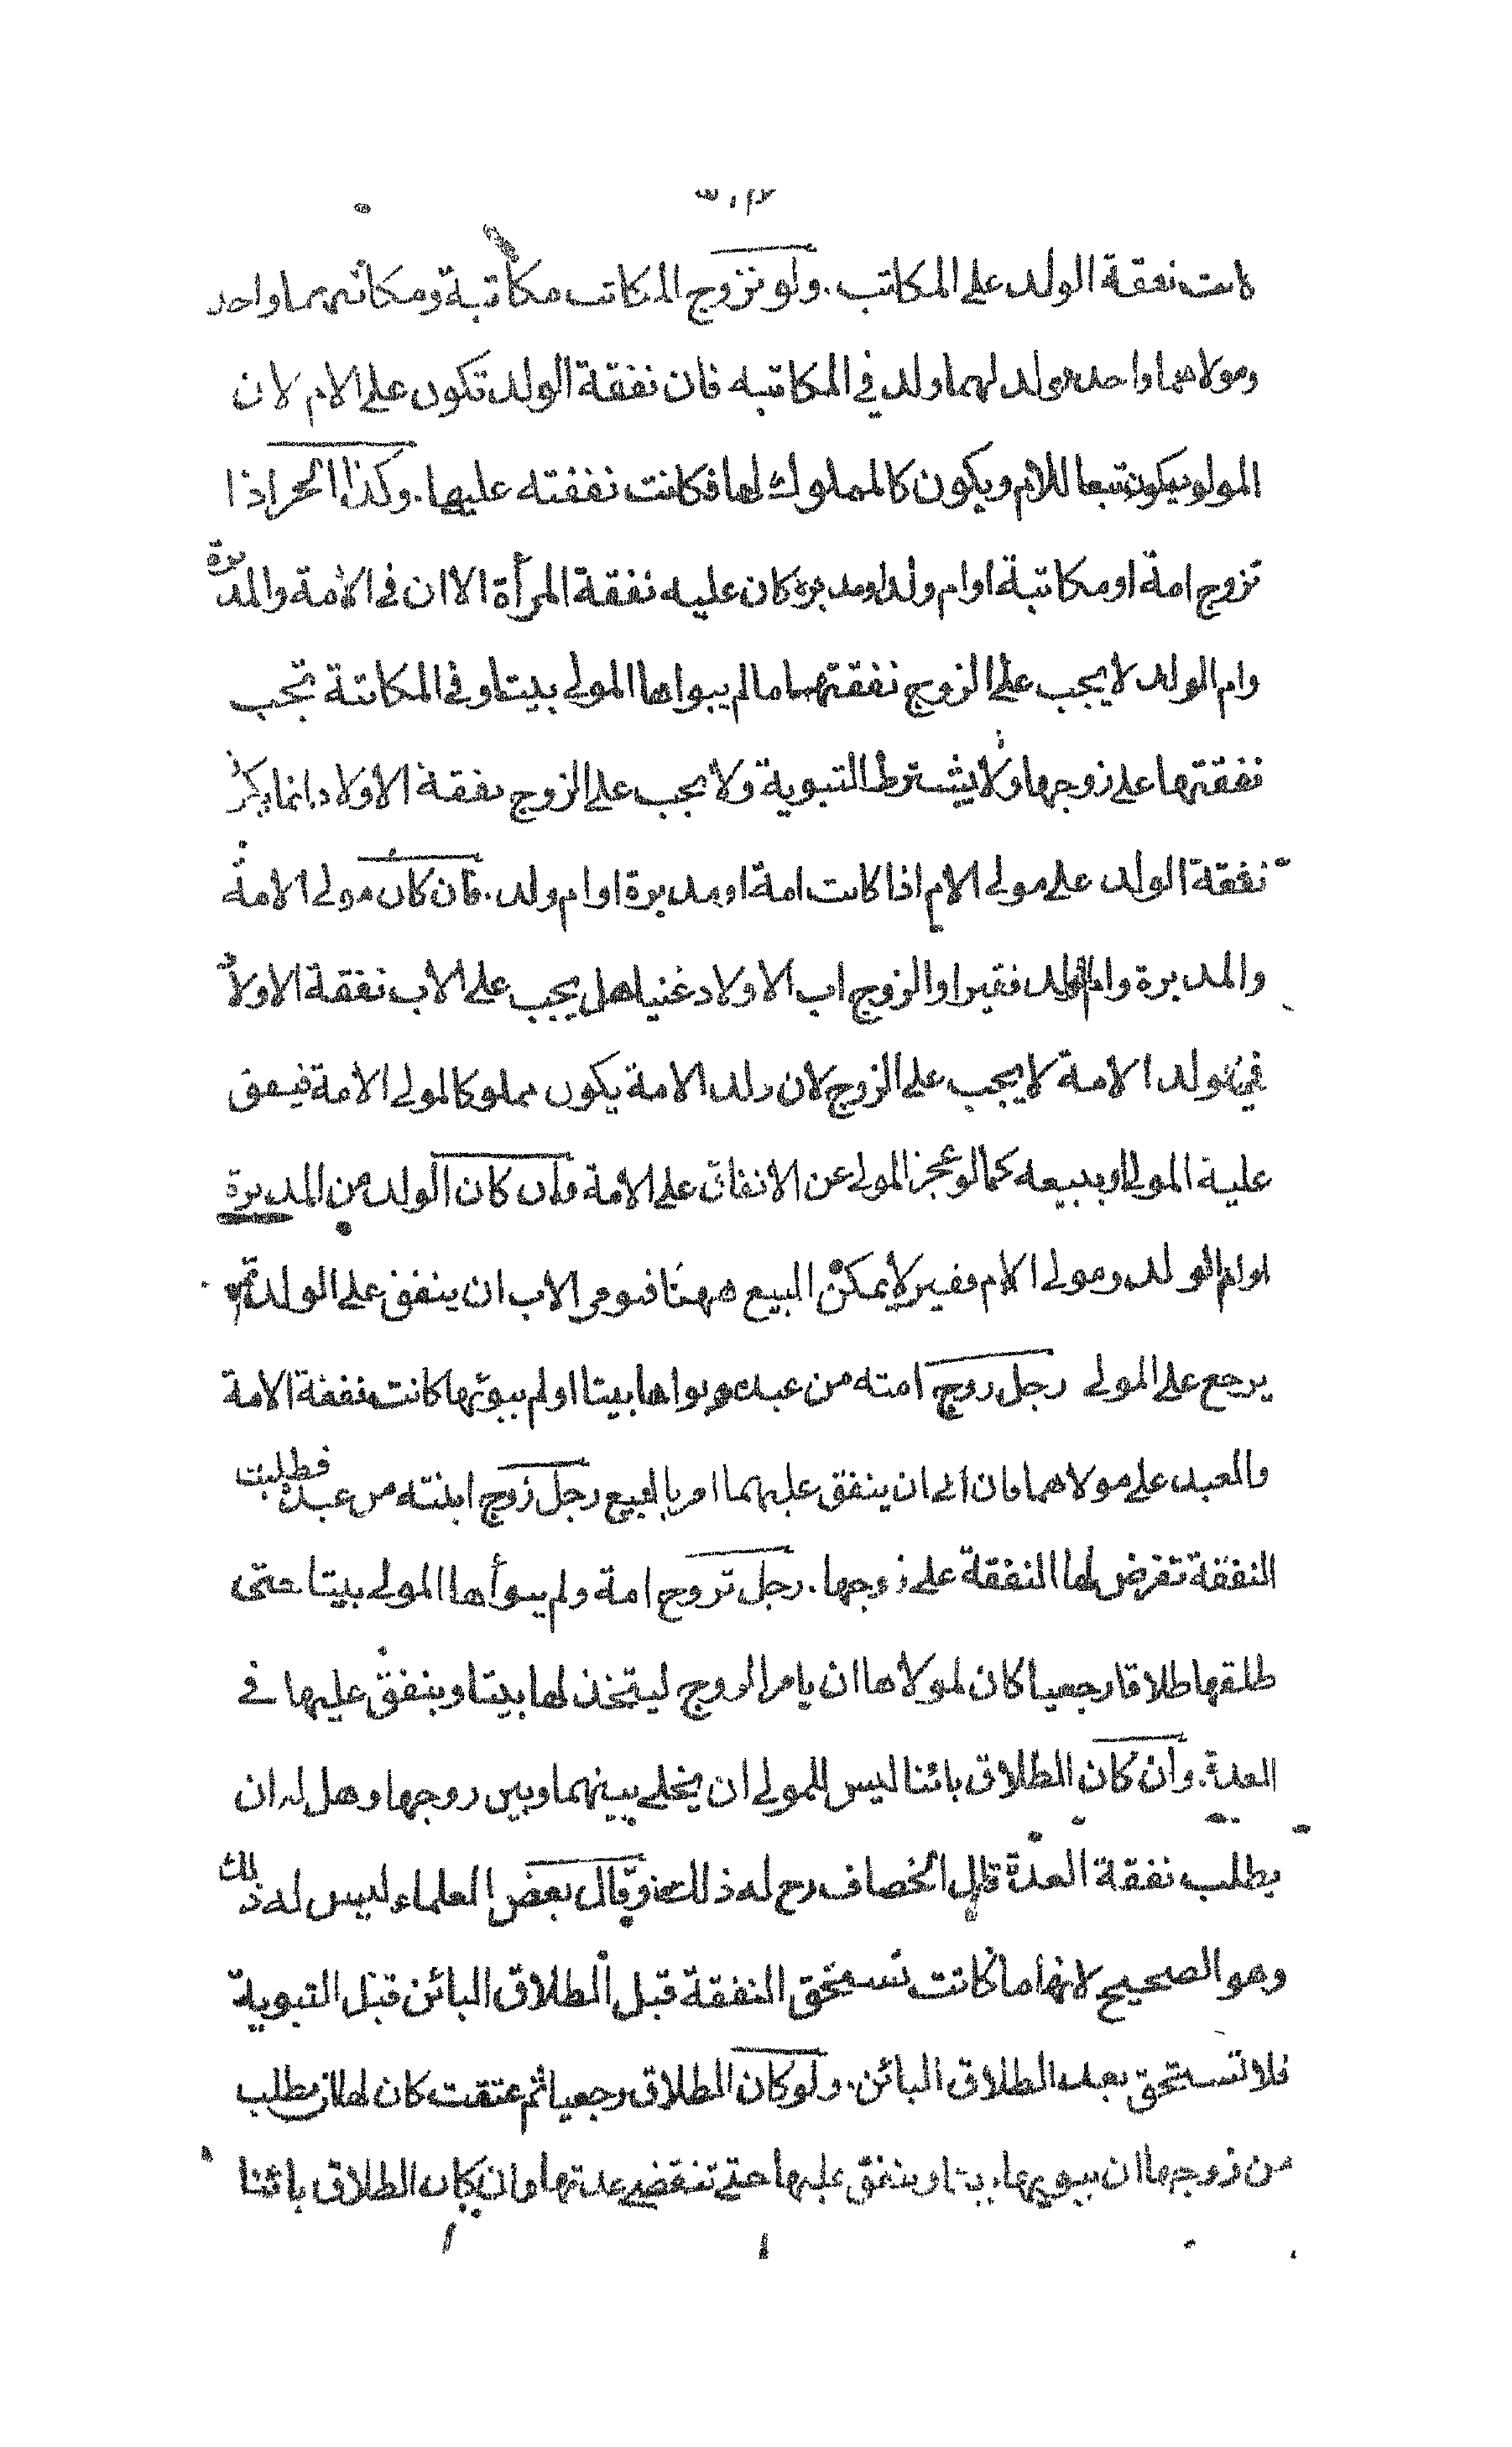 كانت نفقة الولد على المكاتب. ولو تزوج المكاتب مكاتبة ومكاتبهما واحد
ومولاهما واحد فولد لهما ولد في المكاتبه فان نفقة الولد تكون على الام لان
المولود يكون تبعا للام ويكون كالمملوك لها فكانت نفقته عليها. وكذا الحر اذا
تزوج امة او مكاتبة او ام ولد او مدبرة كان عليه نفقة المرأة الا ان في الامة والمدبرة
وام الولد لا يجب على الزوج نفقتهما ما لم يبواها المولى بيتا وفي المكاتبة تجب
نفقتها على زوجها ولا يشترط التبوية ولا يجب على الزوج نفقة الاولاد انما يكون
نفقة الولد على مولى الام اذا كانت امة او مدبرة او ام ولد. فان كان مولى الامة
والمدبرة وام الولد فقيرا والزوج اب الاولاد غنيا هل يجب على الاب نفقة الاولاد
في ولد الامة لا يجب على الزوج لان ولد الامة يكون مملوكا لمولى الامة فينفق
عليه المولى او يبيعه كما لو عجز المولى عن الانفاق على الامة وان كان الولد من المدبرة
او ام الولد ومولى الام فقير لا يمكن البيع ههنا فيومر الاب ان ينفق على الولد ثم
يرجع على المولى رجل زوج امته من عبده وبواها بيتا او لم يبوئها كانت نفقة الامة
والعبد على مولاهما فان ابى ان ينفق عليهما امر بالبيع رجل زوج ابنته من عبده فطلبت
النفقة تفرض لها النفقة على زوجها. رجل تزوج امة ولم يبوأها المولى بيتا حتى
طلقها طلاقا رجعيا كان لمولاها ان يامر الزوج ليتخذ لها بيتا وينفق عليها في
العدة. وان كان الطلاق بائنا ليس للمولى ان يخلى بينهما وبين زوجها وهل له ان
يطلب نفقة العدة قال الخصاف رح له ذلك وقال بعض العلماء ليس له ذلك
وهو الصحيح لانها ما كانت تستحق النفقة قبل الطلاق البائن قبل التبوية
فلا تستحق بعد الطلاق البائن. ولو كان الطلاق رجعيا ثم عتقت كان لها ان تطلب
من زوجها ان يبويها بيتا وينفق عليها حتى تنقضي عدتها وان كان الطلاق بائنا